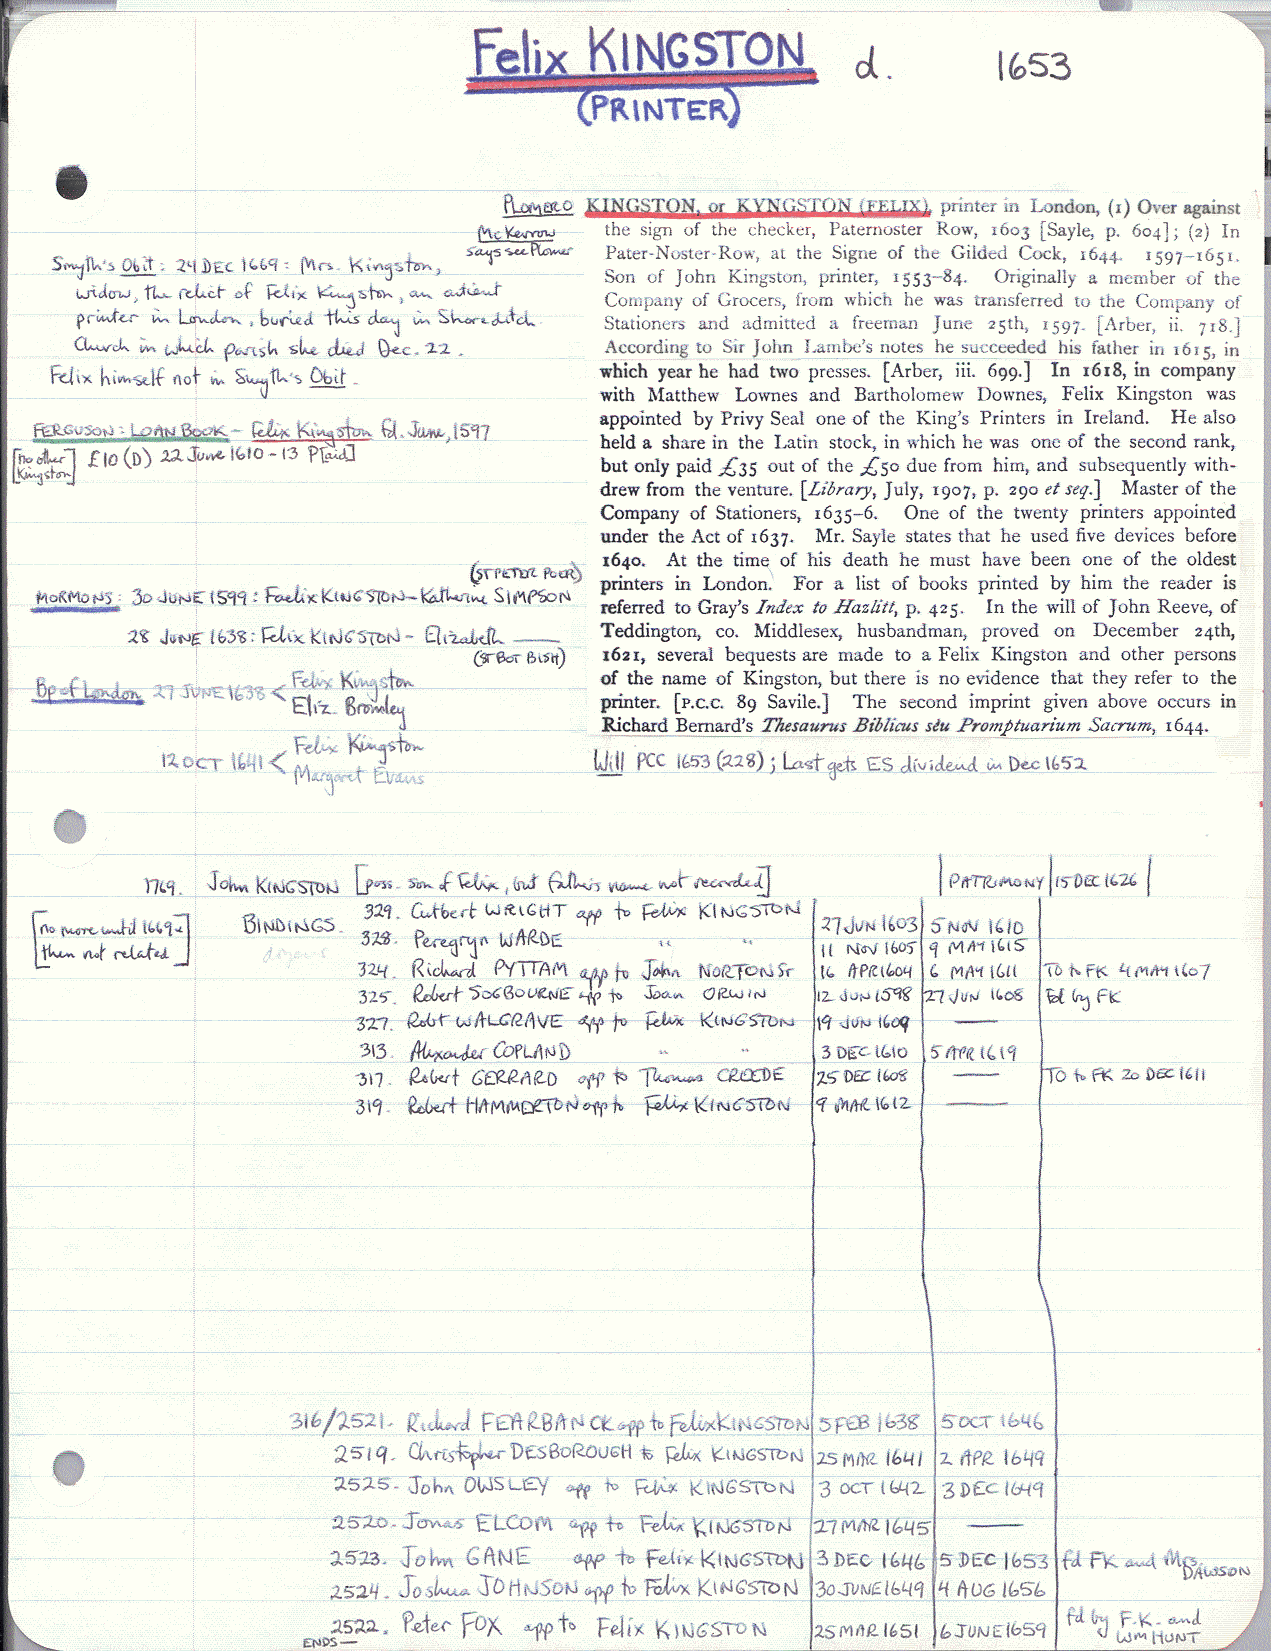 Felix KINGSTON d. 1653
(PRINTER)
PLOMER
McKerrow
says see Plomer
KINGSTON, or KYNGSTON (FELIX), printer in London, (1) Over against
the sign of the checker, Paternoster Row, 1603 [Sayle, p. 604]; (2) In
Pater-Noster-Row, at the Signe of the Gilded Cock, 1644. 1597-1651.
Son of John Kingston, printer, 1553-84. Originally a member of the
Company of Grocers, from which he was transferred to the Company of
Stationers and admitted a freeman June 25th, 1597. [Arber, ii. 718.]
According to Sir John Lambe's notes he succeeded his father in 1615, in
which year he had two presses. [Arber, iii. 699.] In 1618, in company
with Matthew Lownes and Bartholomew Downes, Felix Kingston was
appointed by Privy Seal one of the King's Printers in Ireland. He also
held a share in the Latin stock, in which he was one of the second rank,
but only paid £35 out of the £50 due from him, and subsequently with-
drew from the venture. [Library, July, 1907, p. 290 et seq.] Master of the
Company of Stationers, 1635-6. One of the twenty printers appointed
under the Act of 1637. Mr. Sayle states that he used five devices before
1640. At the time of his death he must have been one of the oldest
printers in London. For a list of books printed by him the reader is
referred to Gray's Index to Hazlitt, p. 425. In the will of John Reeve, of
Teddington, co. Middlesex, husbandman, proved on December 24th,
1621, several bequests are made to a Felix Kingston and other persons
of the name of Kingston, but there is no evidence that they refer to the
printer. [P.C.C. 89 Savile.] The second imprint given above occurs in
Richard Bernard's Thesaurus Biblicus sèu Promptuarium Sacrum, 1644.
Will PCC 1653 (228); Last gets ES dividend in Dec 1652
Smyth's Obit: 24 DEC 1669: Mrs. Kingston,
widow, the relict of Felix Kingston, an antient
printer in London, buried this day in Shoreditch
Church in which parish she died Dec. 22.
Felix himself not in Smyth's Obit.
FERGUSON: LOAN BOOK - Felix Kingston fd. June, 1597
[no other Kingston] £10 (D) 22 June 1610 - 13 P[aid]
(ST PETER POOR)
MORMONS: 30 JUNE 1599: Faelix KINGSTON - Katherine SIMPSON
28 JUNE 1638: Felix KINGSTON - Elizabeth ——
(ST BOT BISH)
Bp of London 27 JUNE 1638 < Felix Kingston
Eliz. Bromley
12 OCT 1641 < Felix Kingston
Margaret Evans
1769. John KINGSTON [poss. son of Felix, but father's name not recorded] PATRIMONY 15 DEC 1626
[no more until 1669 &
then not related]
BINDINGS.
329. Cutbert WRIGHT app to Felix KINGSTON 27 JUN 1603 5 NOV 1610
328. Peregryn WARDE " " 11 NOV 1605 9 MAY 1615
324. Richard PYTTAM app to John NORTON Sr 16 APR 1604 6 MAY 1611 TO to FK 4 MAY 1607
325. Robert SOGBOURNE app to Joan ORWIN 12 JUN 1598 27 JUN 1608 Fd by FK
327. Robt WALGRAVE app to Felix KINGSTON 19 JUN 1609 ——
313. Alexander COPLAND " " 3 DEC 1610 5 APR 1619
317. Robert GERRARD app to Thomas CREEDE 25 DEC 1608 —— TO to FK 20 DEC 1611
319. Robert HAMMERTON app to Felix KINGSTON 9 MAR 1612 ——
316/2521. Richard FEARBANCK app to Felix KINGSTON 5 FEB 1638 5 OCT 1646
2519. Christopher DESBOROUGH to Felix KINGSTON 25 MAR 1641 2 APR 1649
2525. John OWSLEY app to Felix KINGSTON 3 OCT 1642 3 DEC 1649
2520. Jonas ELCOM app to Felix KINGSTON 27 MAR 1645 ——
2523. John GANE app to Felix KINGSTON 3 DEC 1646 5 DEC 1653 fd FK and Mrs. DAWSON
2524. Joshua JOHNSON app to Felix KINGSTON 30 JUNE 1649 4 AUG 1656
2522. Peter FOX app to Felix KINGSTON 25 MAR 1651 6 JUNE 1659 fd by F.K. and
WM HUNT
ENDS —